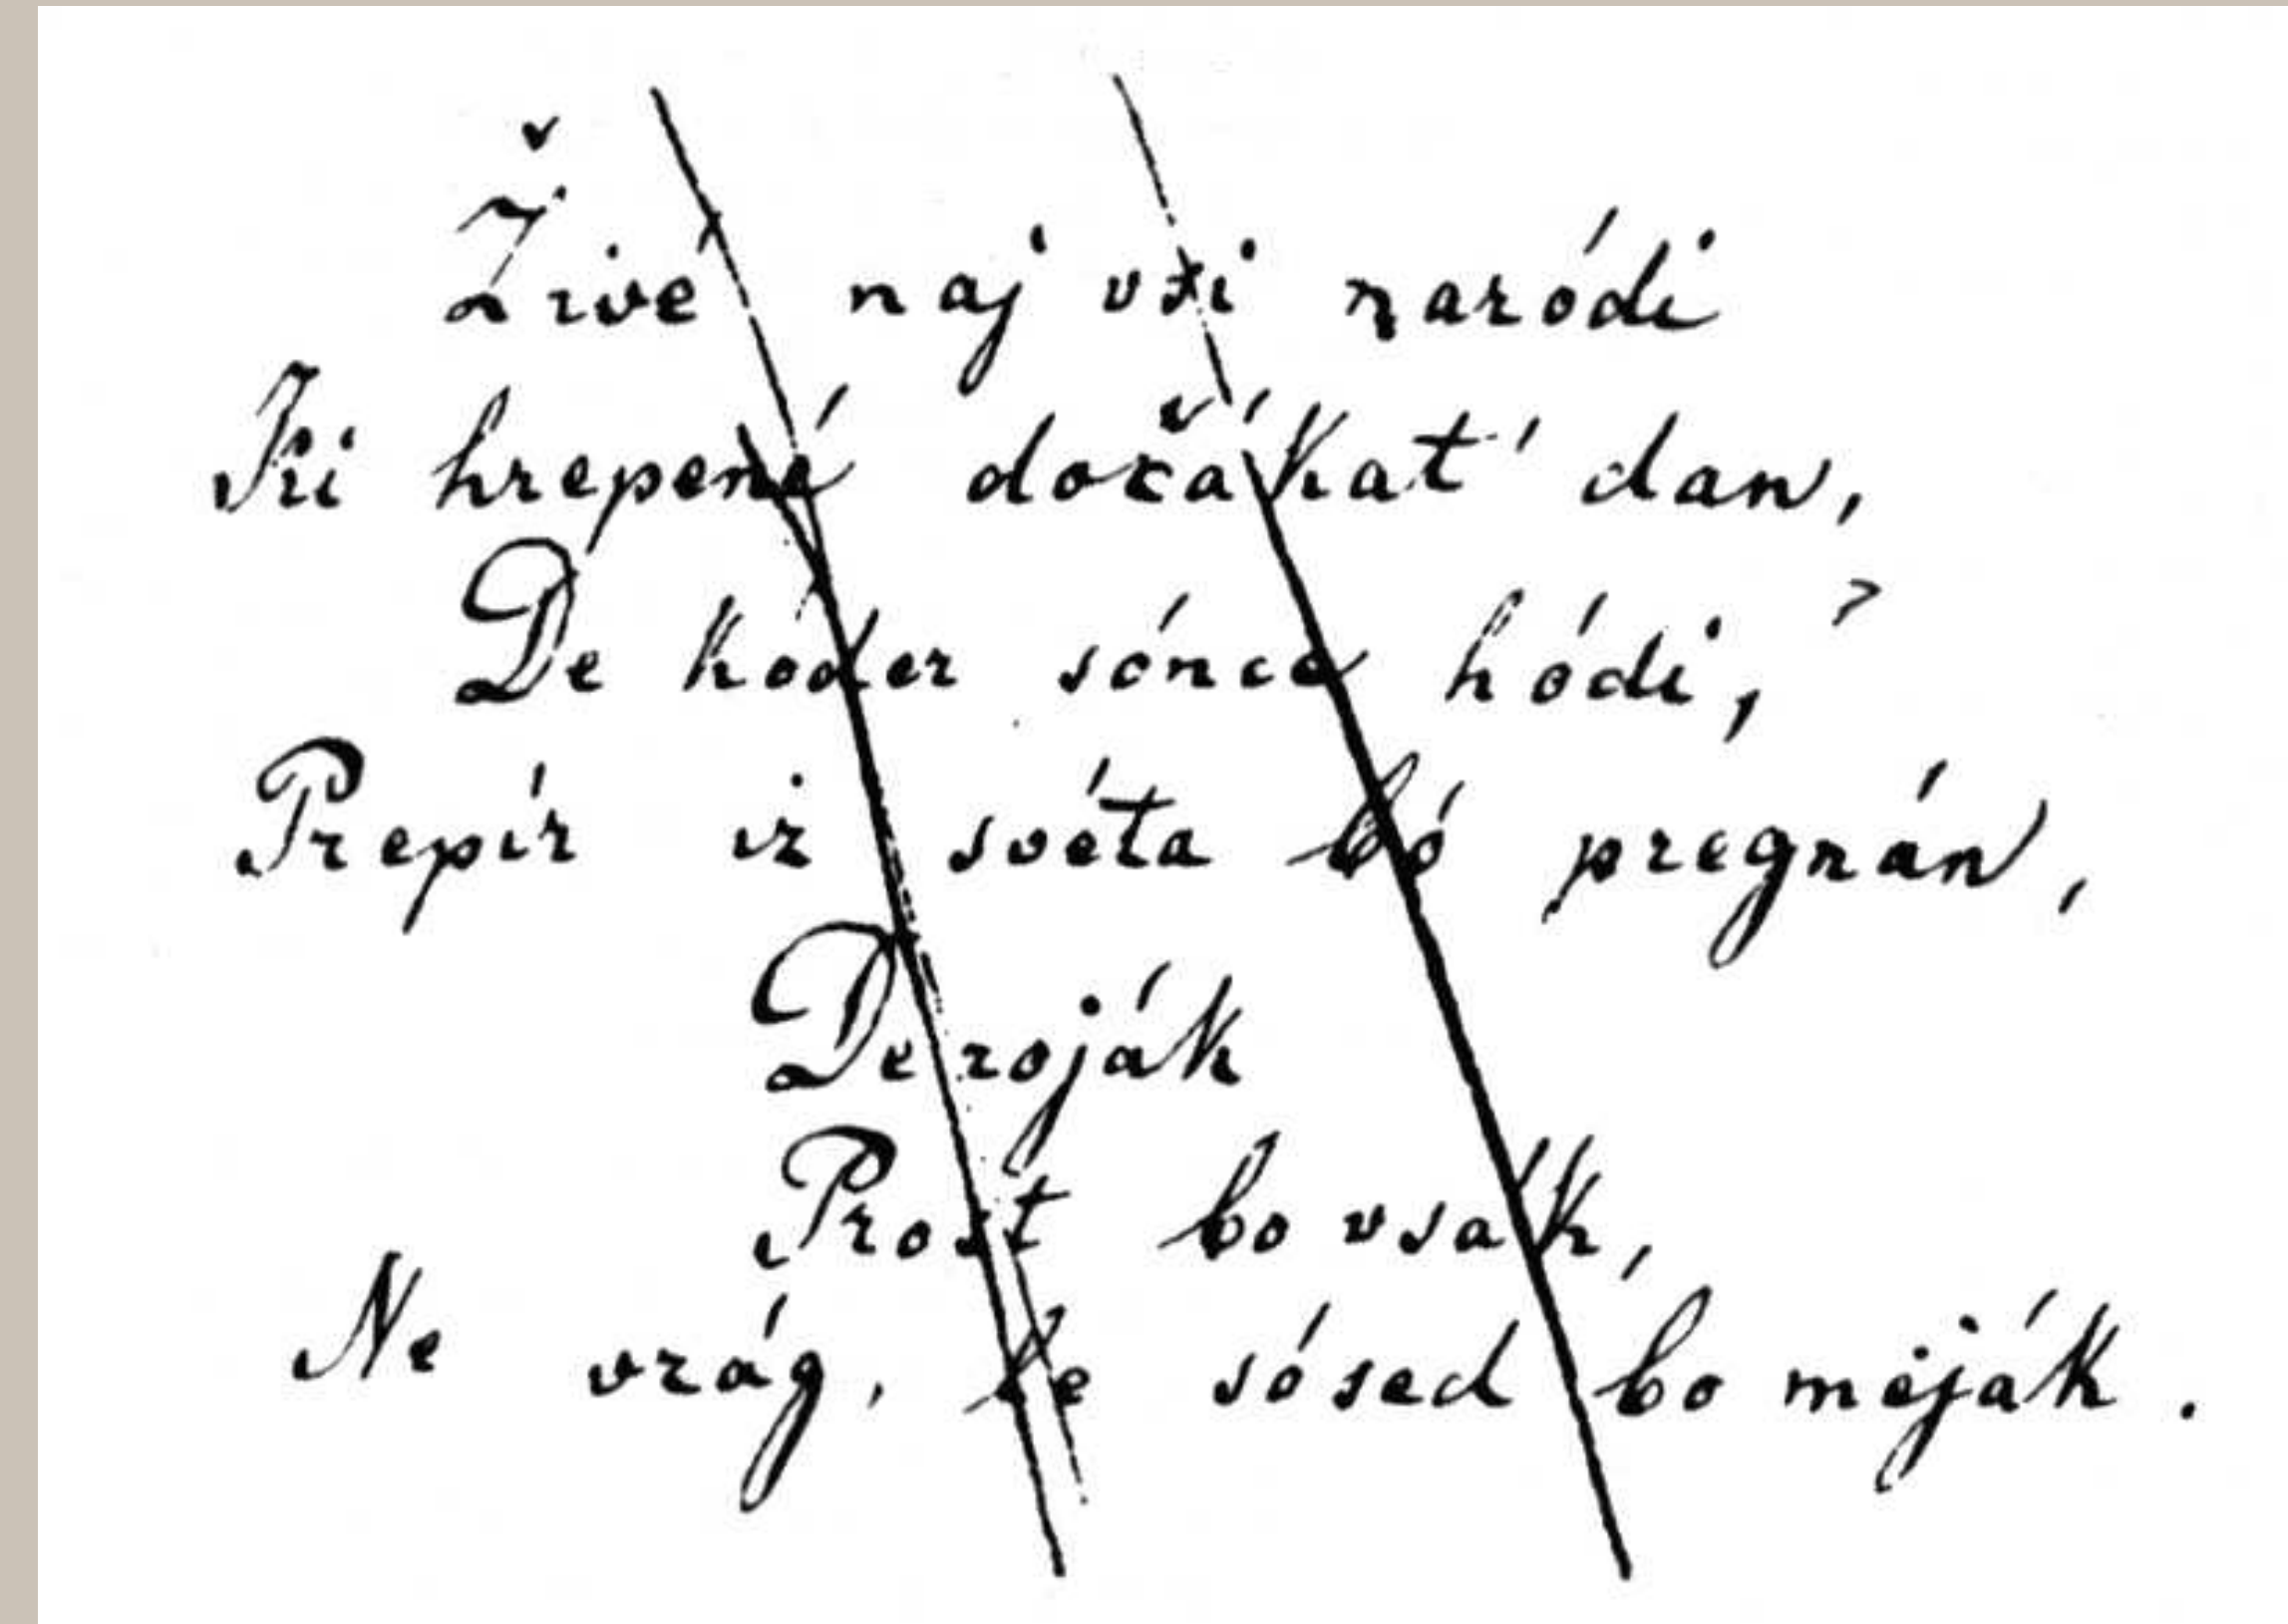 Živé naj vsi naródi
Ki hrepené dočákat' dan,
De kóder sónce hódi,
Prepír iz svéta bó pregnán,
De roják
Prost bo vsak,
Ne vrág, le sósed bo mėják.